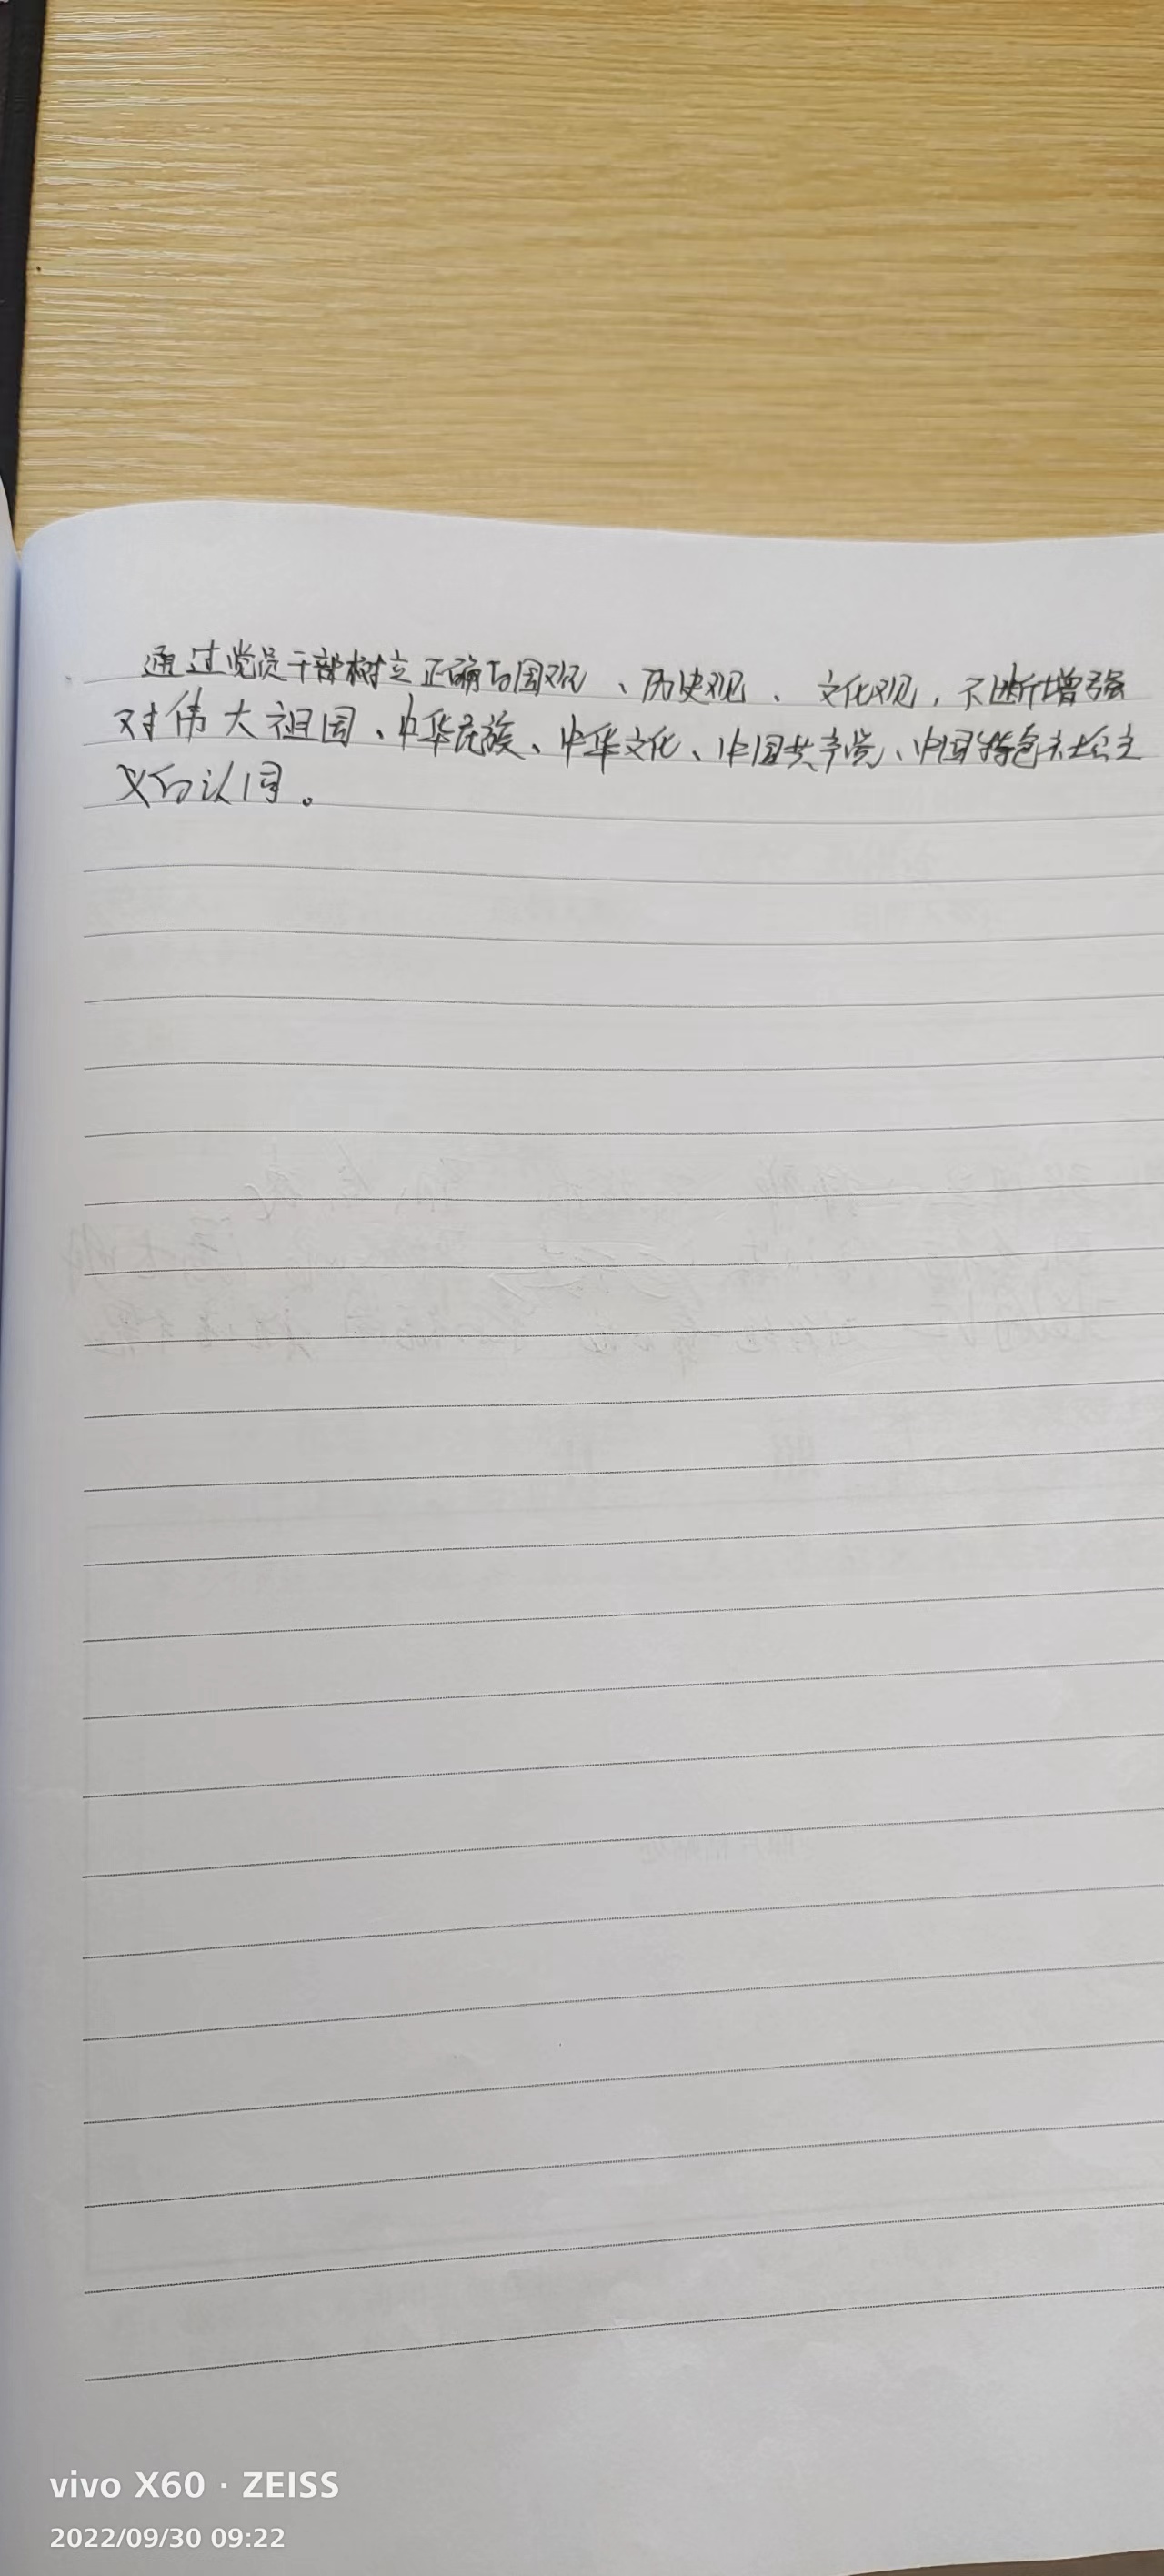 通过党员干部树立正确的国观、历史观、文化观，不断增强
对伟大祖国、中华民族、中华文化、中国共产党、中国特色社会主
义的认同。
vivo X60 · ZEISS
2022/09/30 09:22